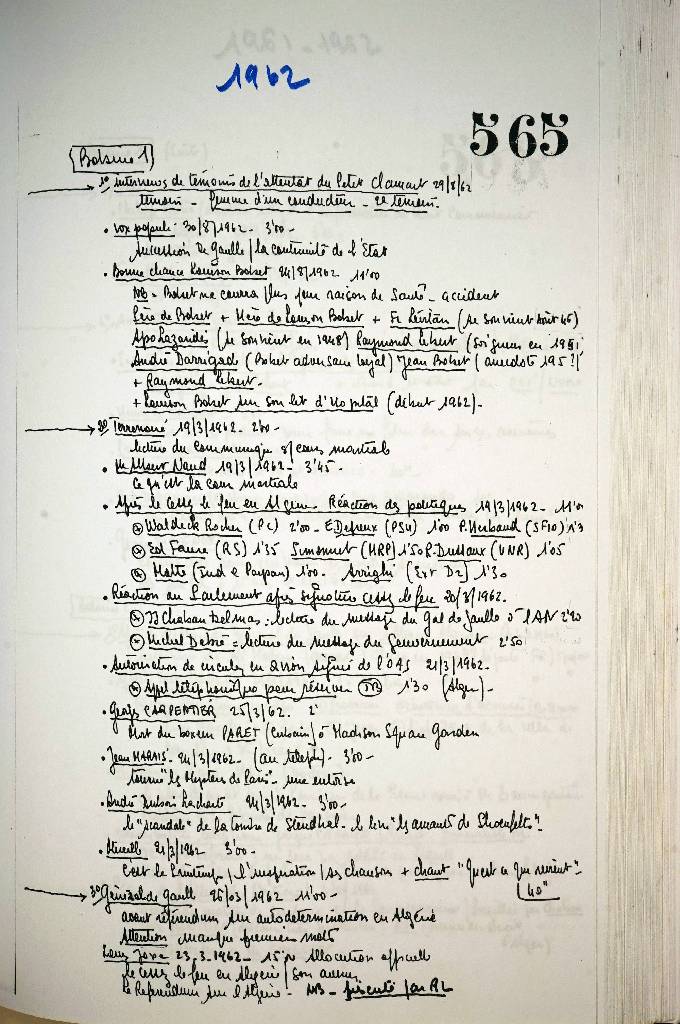 1962
565
Bobine 1
1° interviews de témoins de l'attentat du Petit Clamart 29/8/62
témoin - femme d'un conducteur - 2e témoin.
• vox populi 30/8/1962 - 3'00 -
succession De Gaulle / la continuité de l'Etat
• Bonne chance Louison Bobet 24/8/1962 11'00
NB = Bobet ne courra plus pour raison de Santé - accident
Père de Bobet + Mère de Louison Bobet + (se souvient Août 45)
Apo Lazaridès (se souvient en 1948) Raymond (soigneur en 1951
André Darrigade (Bobet adversaire loyal) Jean Bobet (anecdote 195 ?)
+ Raymond
+ Louison Bobet sur son lit d'hôpital (début 1962) -
2° 19/3/1962 - 2'00 -
lecture du communiqué s/ cours martiale
• Me Albert Naud 19/3/1962 - 3'45 -
Ce qu'est la cour martiale
• Après le cessez le feu en Algérie. Réaction des politiques 19/3/1962 - 11'00
Waldeck Rochet (PC) 2'00 - E. Depreux (PSU) 1'00 P. Herbaud (SFIO) 1'3
Ed Faure (RS) 1'35 Simonnet (MRP) 1'50 R. Dusseaux (UNR) 1'05
(Ind e Paysan) 1'00. Arrighi (Ex 1'30
• Réaction au Parlement après signature cessez le feu 20/3/1962.
JJ Chaban Delmas : lecture du message du Gal de Gaulle à l'AN 2'20
Michel Debré = lecture du message du Gouvernement 2'50
• Autorisation de circuler en signé de l'OAS 21/3/1962 -
Appel téléphonique pour réserver 1'30 (Alger) -
• Georges CARPENTIER 25/3/62. 2'
Mort du boxeur PARET (Cubain) à Madison Square Garden
• Jean MARAIS. 24/3/1962 - (au téléph) - 3'00 -
tourne "les Mystères de Paris" - une entorse
• André Dubois Lachartre 24/3/1962 - 3'00 -
le "scandale" de la tombe de Stendhal - le livre "les amants de
• 21/3/1962 3'00 -
C'est le Printemps / l'inspiration / ses chanson + chant "Qu'est ce qui revient" -
40"
3° Général de Gaulle 26/03/1962 11'00 -
avant référendum sur autodétermination en Algérie
Attention manque premiers mots
Louis Joxe 23-3-1962 - 15'00 Allocution officielle
le cessez le feu en Algérie / son avenir
le Referendum sur l'Algérie - NB -